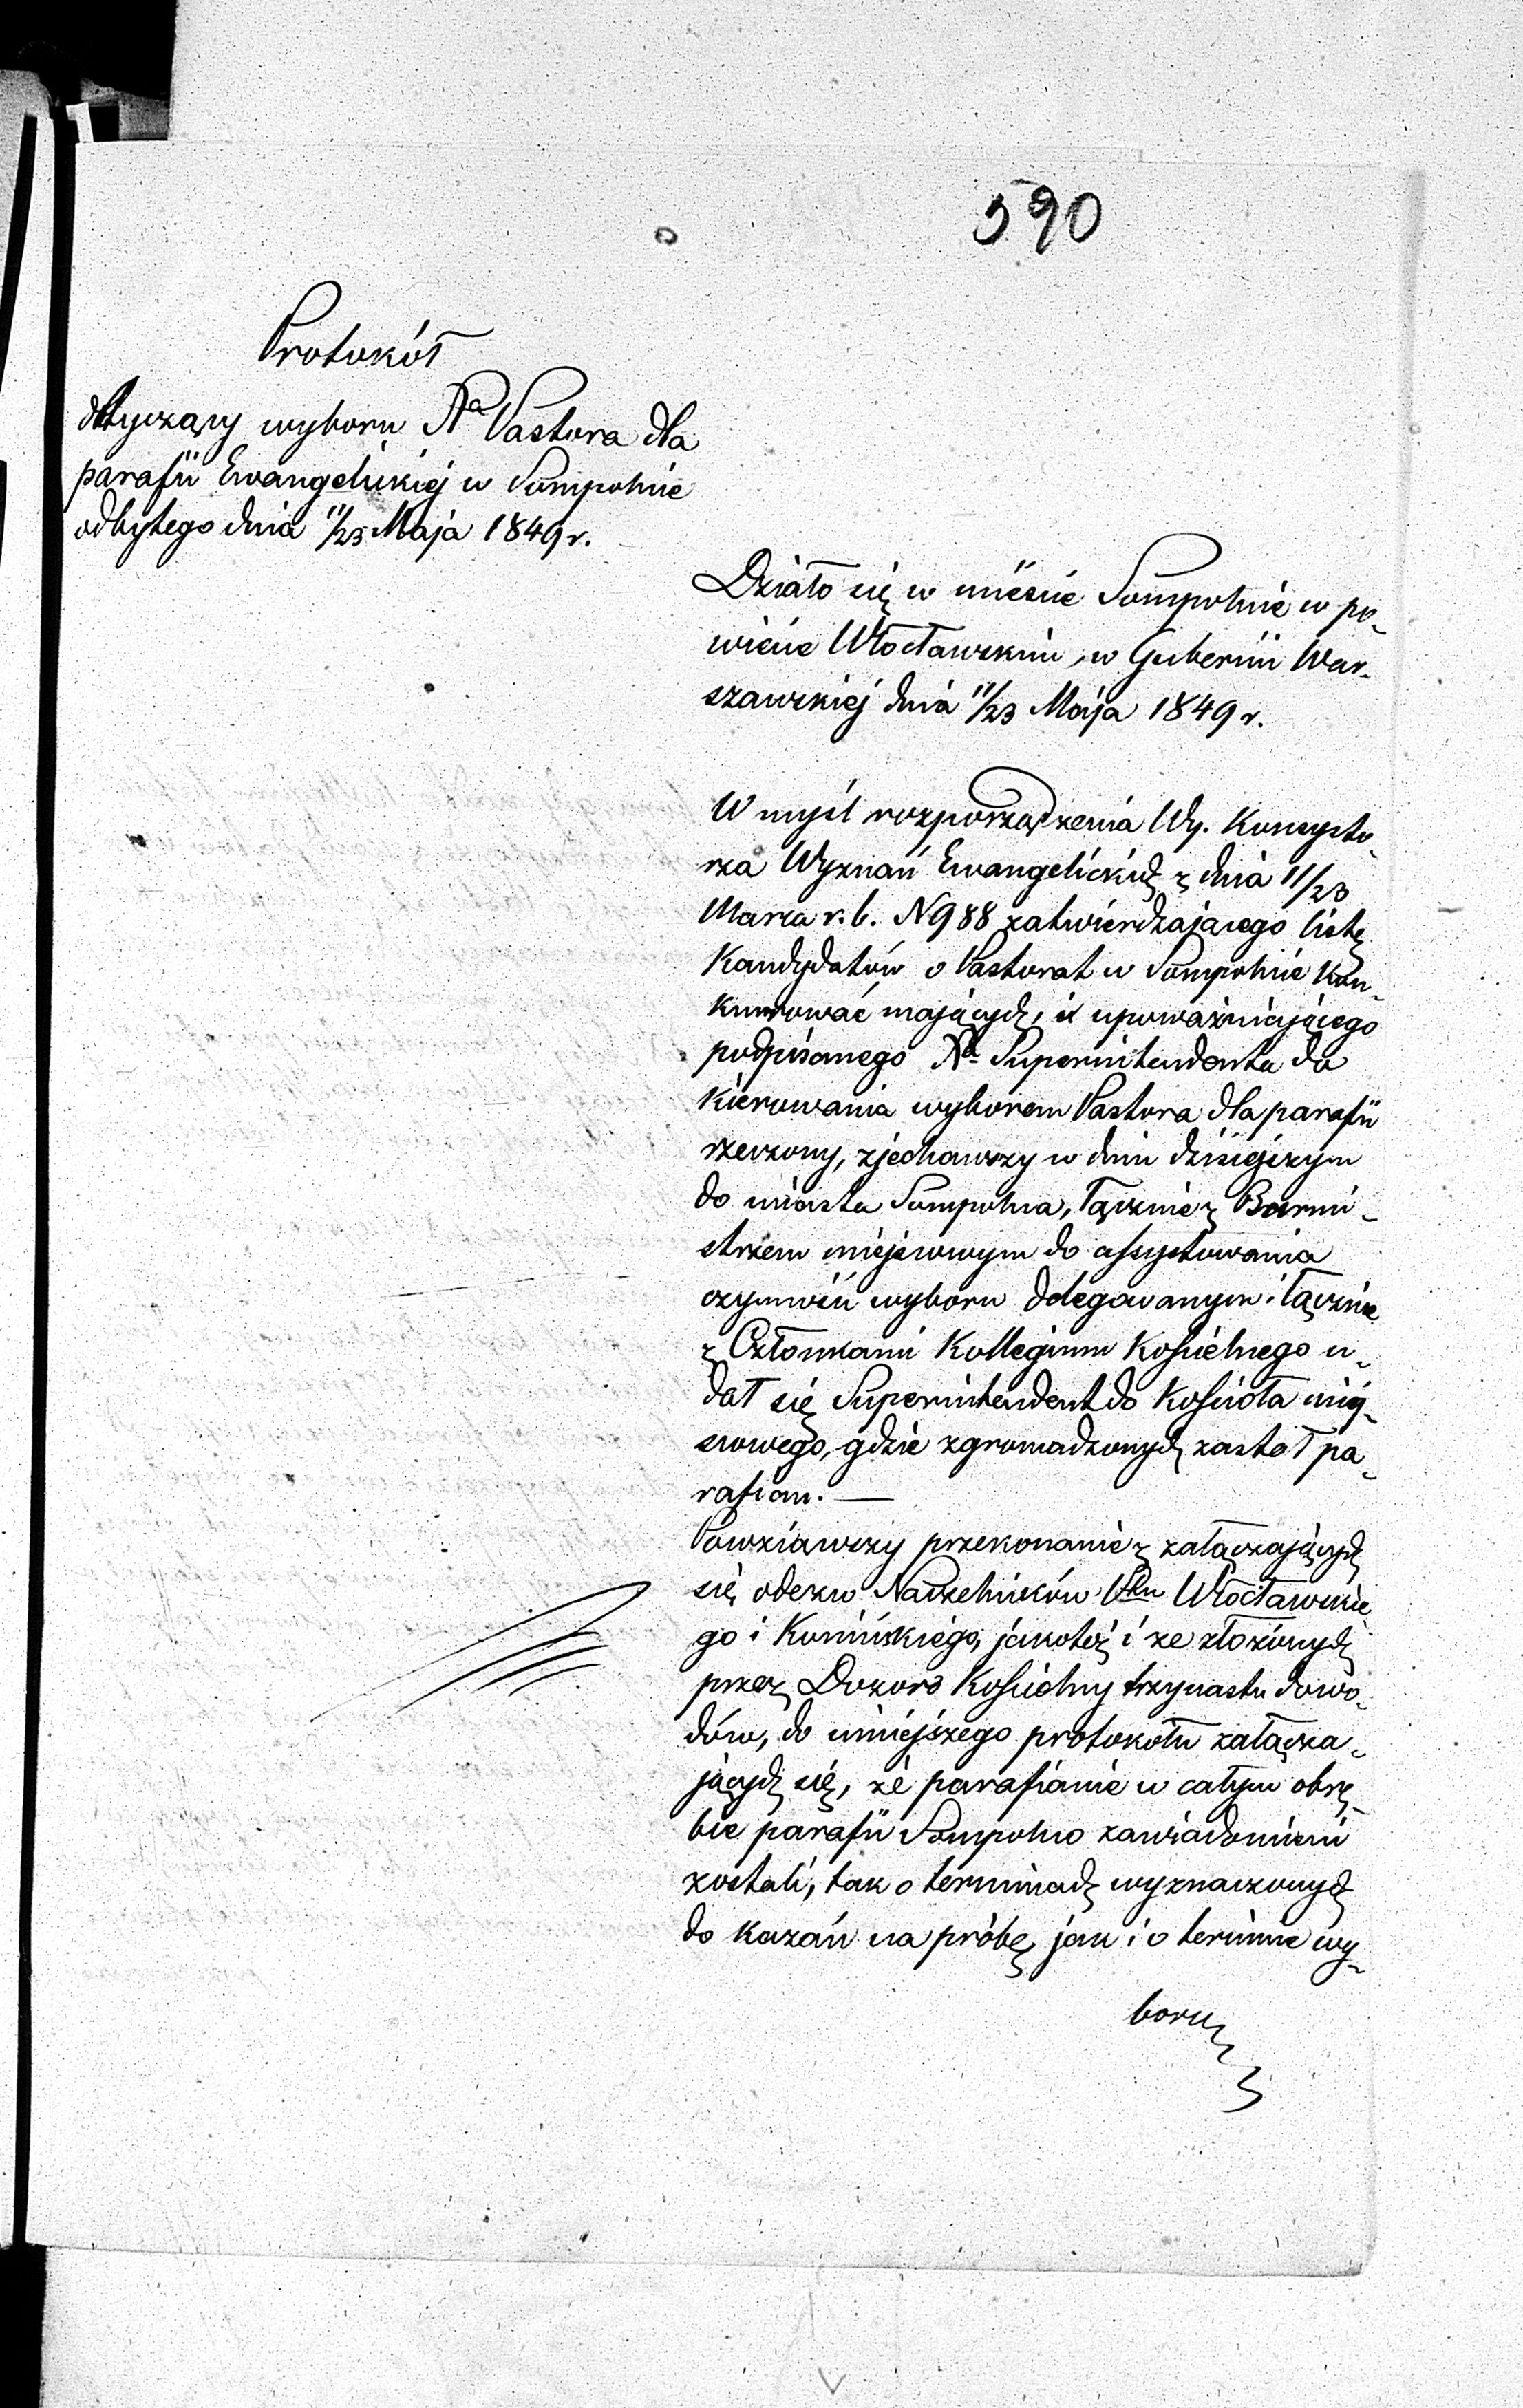 590
Protokół
dotyczący wyboru Xa Pastora dla
parafii Ewangelickiej w Sompolnie
odbytego dnia 11/23 Maja 1849 r.
Działo się w mieście Sompolnie w po-
wiecie Włocławskim, w Gubernii War-
szawskiej dnia 11/23 Maja 1849 r.
W myśl rozporządzenia Wy. Konsysto-
rza Wyznań Ewangelickich z dnia 11/23
Marca r. b. N 988 zatwierdzającego listę
Kandydatów o Pastorat w Sompolnie kon-
kurować mających, i upoważniającego
podpisanego Xa Superintendenta do
kierowania wyborem Pastora dla parafii
rzeczony, zjechawszy w dniu dzisiejszym
do miasta Sompolna, łącznie z Burmi-
strzem miejscowym do assystowania
czynności wyboru delegowanym i łącznie
z Członkami Kollegium Kościelnego u-
dał się Superintendent do Kościoła miej-
scowego, gdzie zgromadzonych zastał pa-
rafian. —
Powziąwszy przekonanie z załączających
się odezw Naczelników Ptu Włocławskie
go i Konińskiego, jakoteż i ze złożonych
przez Dozór Kościelny trzynastu dowo-
dów, do niniejszego protokołu załącza-
jących się, że parafianie w całym obrę-
bie parafii Sompolno zawiadomieni
zostali, tak o terminach wyznaczonych
do kazań na próbę, jak i o terminie wy-
boru